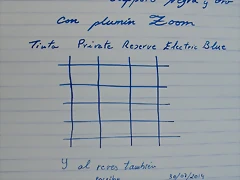 negra y oro
con plumín Zoom
Tinta Private Reserve Electric Blue
Y al reves también
escribo 30/03/2014